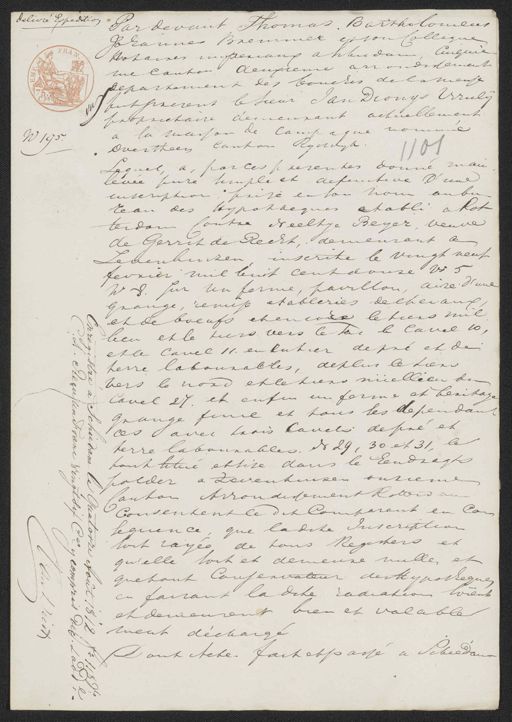 délivré Expédition
Par devant Thomas, Bartholomeus
Johannes Bremmer et son Collegue
Notaires
me canton deuxieme arrondissement
departement des bouches de la meuse
fut present le sieur Jan Dionys
proprietaire demeurant actuellement
a la maison de campagne nommée
Overschees Canton
N 195
1101
Lequel, a, par ces presentes donné main
levée pure simple et definitive d'une
inscription, prise en son nom au bu
reau des hypotheques etabli a Rot
terdam Contre Neeltje Beyer, veuve
de Gerrit de Recht, demeurant a
Zevenhuisen, inscrite le vingt neuf
fevrier mil huit cent douze Vol 5
N 8. sur un ferme, pavillon, aire d'une
grange, remise etableries de chevaux,
et de boeufs et encore le tiers mil
lieu et le tiers vers le Cavel 10,
et le Cavel 11. en entier de pré et de
terre labourables, de plus le tiers
vers le nord et le tiers millieu du
Cavel 27. et enfin un ferme et heritage
grange fumé et tous les dependan
ces avec trois Cavels de pré et
terre labourables. N 29, 30 et 31, le
tout situé et sise dans le Eendragts
polder a Zevenhuisen onzieme
Canton Arrondissement Rotterdam
Consentent le dit Comparant en Con
sequence, que la dite Inscription
soit rayée de tous Registres et
qu'elle soit et demeure nulle, et
que tout Conservateur des Hypotheques
en faisant la dite radiation soient
et demeurent bien et valable
ment dechargé
Dont Acte. fait et passé a Schiedam
Enregistré a Schiedam le quatorze Aout 1812